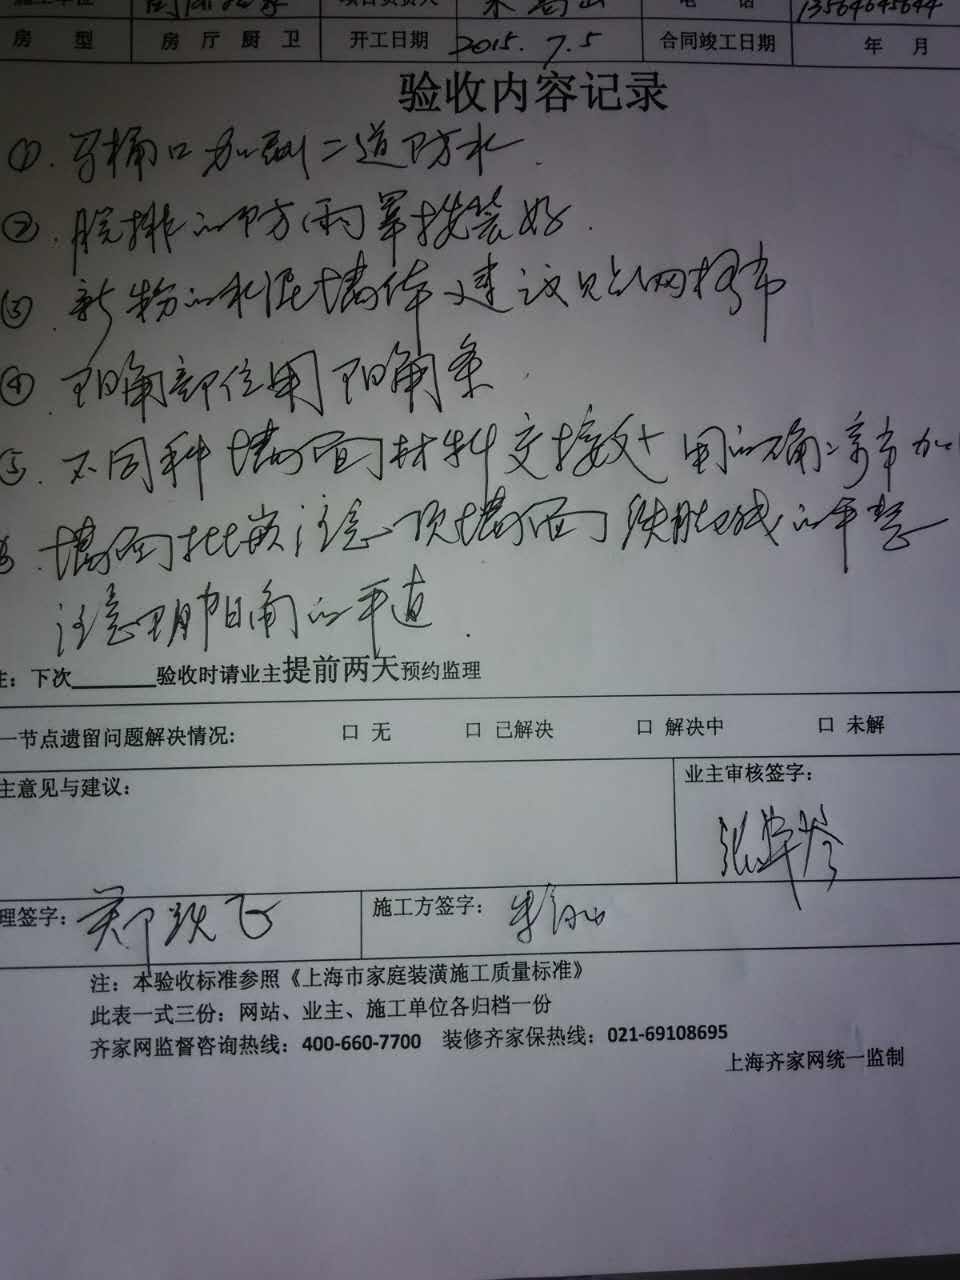 施工单位 项目负责人 电 话 13564645644
房 型 房 厅 厨 卫 开工日期 2015.7.5 合同竣工日期 年 月
验收内容记录
①.马桶口加刷二道防水.
②.脱排的防雨罩按装好.
③.新粉的水泥墙体建议贴网格布
④.阳角部位用阳角条.
⑤.不同种墙面材料交接处用的确凉布加
墙面批嵌注意顶墙面的平整
注意阴阳角的平直.
注：下次 验收时请业主提前两天预约监理
一节点遗留问题解决情况: 口 无 口 已解决 口 解决中 口 未解
主意见与建议: 业主审核签字:
理签字: 郑跃飞 施工方签字:
注：本验收标准参照《上海市家庭装潢施工质量标准》
此表一式三份：网站、业主、施工单位各归档一份
齐家网监督咨询热线：400-660-7700 装修齐家保热线：021-69108695
上海齐家网统一监制